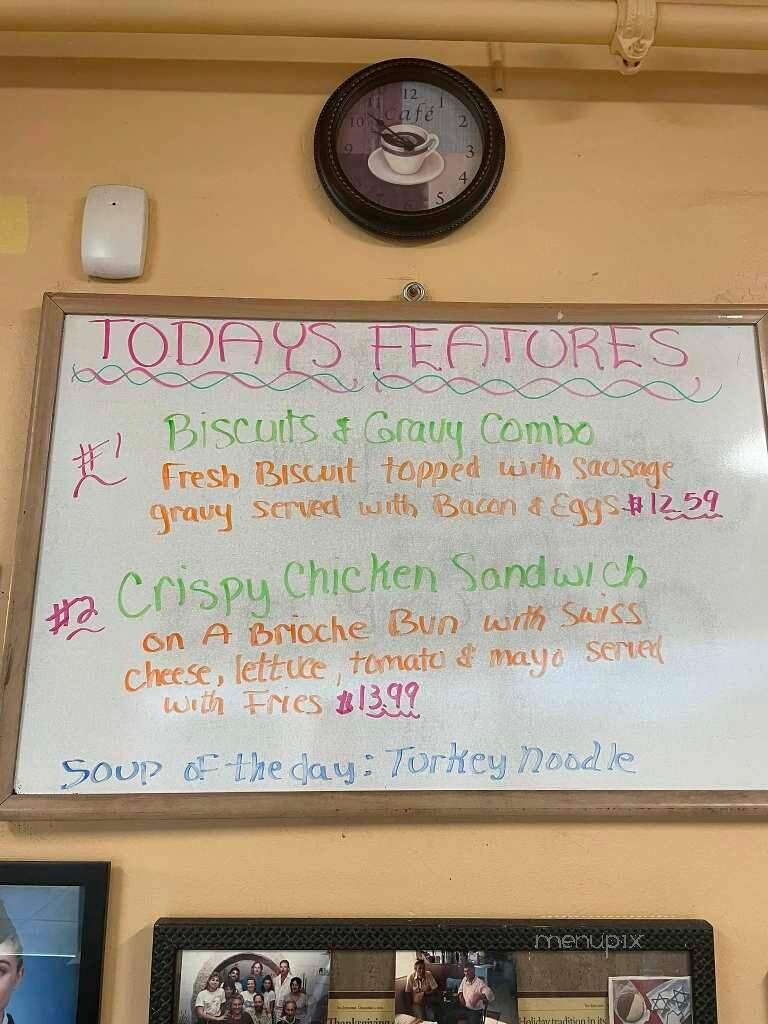 12
11
1
10
café
2
9
3
4
5
6
TODAYS FEATURES
#1 Biscuits & Gravy Combo
Fresh Biscuit topped with Sausage
gravy served with Bacon & Eggs $12.59
#2 Crispy Chicken Sandwich
on A Brioche Bun with Swiss
cheese, lettuce, tomato & mayo served
with Fries $13.99
Soup of the day: Turkey Noodle
menupix
Thanksgiving
Holiday tradition in its